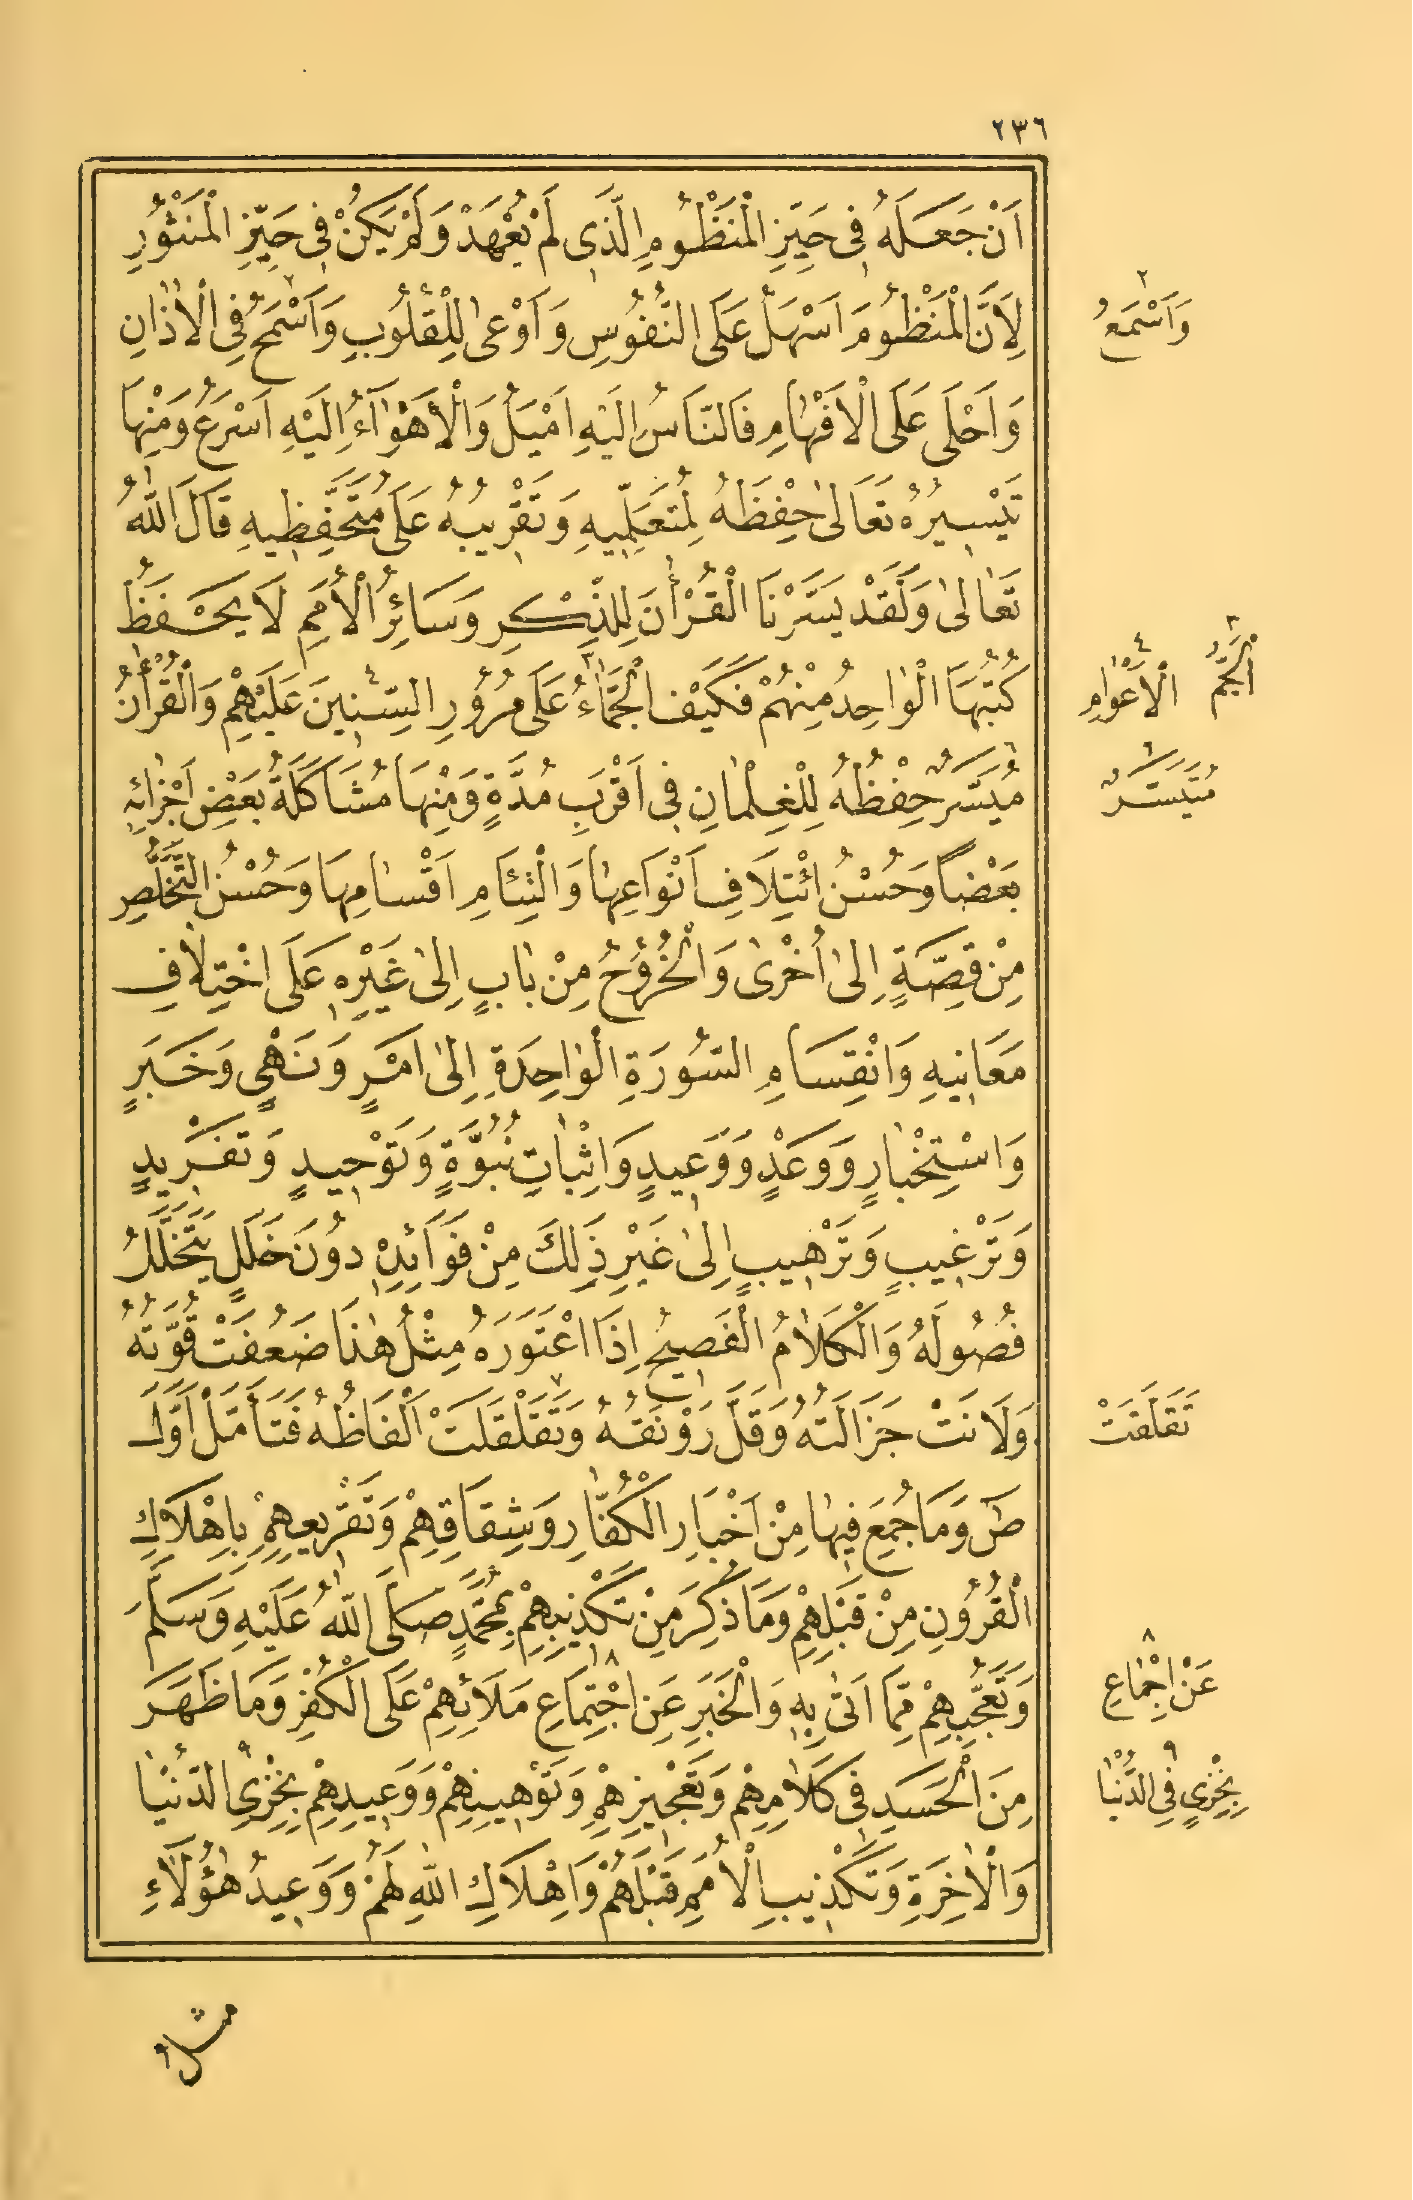 ٢٣٦
اَنْ جَعَلَهُ فِى حَيِّزِ الْمَنْظُومِ الَّذِى لَمْ يُعْهَدْ وَلَمْ يَكُنْ فِى حَيِّزِ الْمَنْثُورِ
لِاَنَّ الْمَنْظُومَ اَسْهَلُ عَلَى النُّفُوسِ وَاَوْعٰى لِلْقُلُوبِ وَاَسْمَحُ فِى الْاٰذَانِ
وَاَحْلَى عَلَى الْاَفْهَامِ فَالنَّاسُ اِلَيْهِ اَمْيَلُ وَالْاَهْوَاءُ اِلَيْهِ اَسْرَعُ وَمِنْهَا
تَيْسِيرُهُ تَعَالٰى حِفْظَهُ لِمُتَعَلِّمِيهِ وَتَقْرِيبُهُ عَلَى مُتَحَفِّظِيهِ قَالَ اللّٰهُ
تَعَالٰى وَلَقَدْ يَسَّرْنَا الْقُرْاٰنَ لِلذِّكْرِ وَسَائِرُ الْاُمَمِ لَا يَحْفَظُ
كُتُبَهَا الْوَاحِدُ مِنْهُمْ فَكَيْفَ الْجَمَّاءُ عَلَى مُرُورِ السِّنِينَ عَلَيْهِمْ وَالْقُرْاٰنُ
مُيَسَّرٌ حِفْظُهُ لِلْغِلْمَانِ فِى اَقْرَبِ مُدَّةٍ وَمِنْهَا مُشَاكَلَةُ بَعْضِ اَجْزَائِهِ
بَعْضًا وَحُسْنُ ائْتِلَافِ اَنْوَاعِهَا وَالْتِئَامِ اَقْسَامِهَا وَحُسْنُ التَّخَلُّصِ
مِنْ قِصَّةٍ اِلٰى اُخْرٰى وَالْخُرُوجُ مِنْ بَابٍ اِلٰى غَيْرِهِ عَلَى اخْتِلَافِ
مَعَانِيهِ وَانْقِسَامِ السُّورَةِ الْوَاحِدَةِ اِلٰى اَمْرٍ وَنَهْىٍ وَخَبَرٍ
وَاسْتِخْبَارٍ وَوَعْدٍ وَوَعِيدٍ وَاِثْبَاتِ نُبُوَّةٍ وَتَوْحِيدٍ وَتَفْرِيدٍ
وَتَرْغِيبٍ وَتَرْهِيبٍ اِلٰى غَيْرِ ذٰلِكَ مِنْ فَوَائِدِهِ دُونَ خَلَلٍ يَتَخَلَّلُ
فُصُولَهُ وَالْكَلَامُ الْفَصِيحُ اِذَا اعْتَوَرَهُ مِثْلُ هٰذَا ضَعُفَتْ قُوَّتُهُ
وَلَانَتْ جَزَالَتُهُ وَقَلَّ رَوْنَقُهُ وَتَقَلْقَلَتْ اَلْفَاظُهُ فَتَأَمَّلْ اَوَّلَ
صٓ وَمَا جُمِعَ فِيهَا مِنْ اَخْبَارِ الْكُفَّارِ وَشِقَاقِهِمْ وَتَقْرِيعِهِمْ بِاِهْلَاكِ
الْقُرُونِ مِنْ قَبْلِهِمْ وَمَا ذُكِرَ مِنْ تَكْذِيبِهِمْ بِمُحَمَّدٍ صَلَّى اللّٰهُ عَلَيْهِ وَسَلَّمَ
وَتَعَجُّبِهِمْ مِمَّا اَتٰى بِهِ وَالْخَبَرِ عَنِ اجْتِمَاعِ مَلَائِهِمْ عَلَى الْكُفْرِ وَمَا ظَهَرَ
مِنَ الْحَسَدِ فِى كَلَامِهِمْ وَتَعْجِيزِهِمْ وَتَوْهِينِهِمْ وَوَعِيدِهِمْ بِخِزْىِ الدُّنْيَا
وَالْاٰخِرَةِ وَتَكْذِيبِ الْاُمَمِ قَبْلَهُمْ وَاِهْلَاكِ اللّٰهِ لَهُمْ وَوَعِيدُ هٰؤُلَاءِ
٢ وَاَسْمَعُ
٣ الْجَمُّ ٤ الْاَعْوَامِ
٦ مُتَيَسَّرٌ
تَقَلَّقَتْ
٨ عَنْ اِجْمَاعِ
٩ بِخِزْىٍ فِى الدُّنْيَا